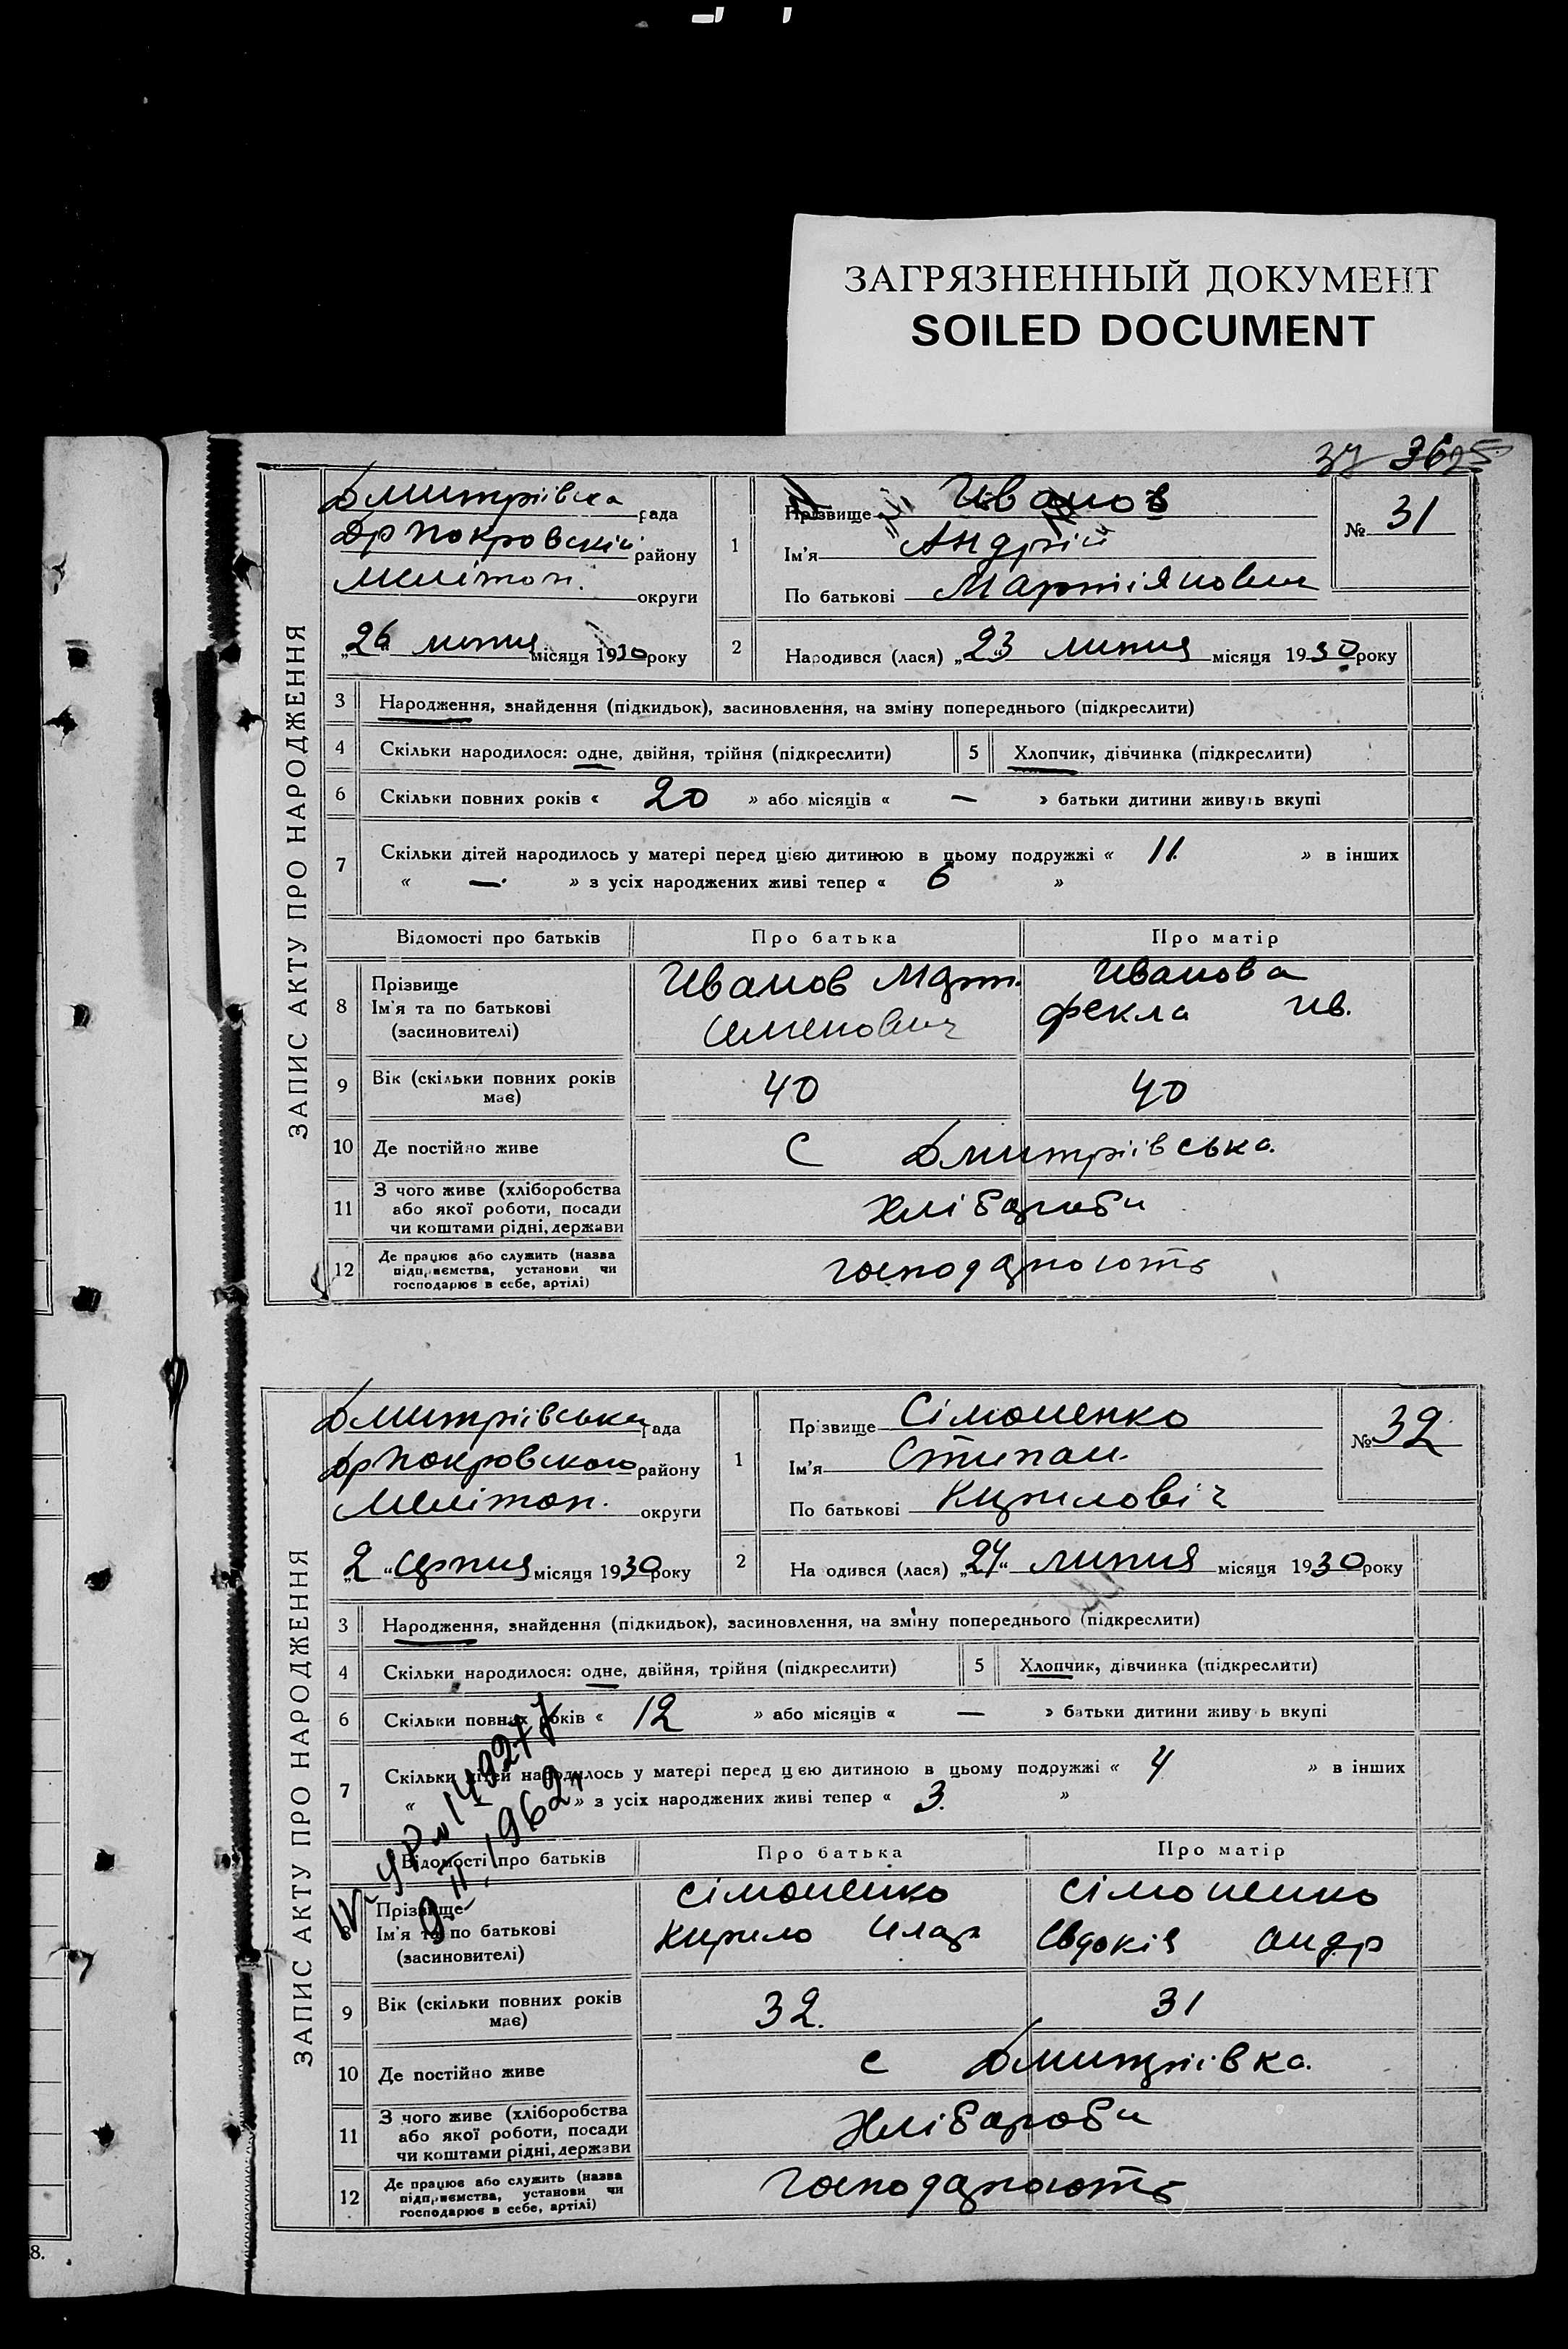 ЗАГРЯЗНЕННЫЙ ДОКУМЕНТ
SOILED DOCUMENT
37 36
ЗАПИС АКТУ ПРО НАРОДЖЕННЯ
Дмитрівка рада
Др Покровській району
Мелітоп. округи
„26“ липня місяця 1930 року
1
Прізвище Иванов
Ім'я Андрій
По батькові Мартіянович
№ 31
2 Народився (лася) „23“ липня місяця 1930 року
3 Народження, знайдення (підкидьок), засиновлення, на зміну попереднього (підкреслити)
4 Скільки народилося: одне, двійня, трійня (підкреслити) 5 Хлопчик, дівчинка (підкреслити)
6 Скільки повних років « 20 » або місяців « — » батьки дитини живуть вкупі
7 Скільки дітей народилось у матері перед цією дитиною в цьому подружжі « 11. » в інших
« — » з усіх народжених живі тепер « 6 »
Відомості про батьків Про батька Про матір
8 Прізвище
Ім'я та по батькові
(засиновителі)
Иванов Март.
Семенович
Иванова
Фекла Ив.
9 Вік (скільки повних років має) 40 40
10 Де постійно живе С Дмитріівська.
11 З чого живе (хліборобства
або якої роботи, посади
чи коштами рідні, держави
Хлібароби
12 Де працює або служить (назва
підприємства, установи чи
господарює в себе, артілі)
господарюють
ЗАПИС АКТУ ПРО НАРОДЖЕННЯ
Дмитріівська рада
Др Покровского району
Мелітоп. округи
„2“ серпня місяця 1930 року
1
Прізвище Сімоненко
Ім'я Стипан.
По батькові Кириловіч
№ 32
2 На одився (лася) „27“ липня місяця 1930 року
3 Народження, знайдення (підкидьок), засиновлення, на зміну попереднього (підкреслити)
4 Скільки народилося: одне, двійня, трійня (підкреслити) 5 Хлопчик, дівчинка (підкреслити)
6 Скільки повних років « 12 » або місяців « — » батьки дитини живу ь вкупі
7 Скільки дітей народилось у матері перед цією дитиною в цьому подружжі « 4 » в інших
« » з усіх народжених живі тепер « 3. »
Відомості про батьків Про батька Про матір
8 Прізвище
Ім'я та по батькові
(засиновителі)
Сімоненко
Кирило Илар
Сімоненко
Євдокія Андр
9 Вік (скільки повних років має) 32. 31
10 Де постійно живе с Дмитріівка.
11 З чого живе (хліборобства
або якої роботи, посади
чи коштами рідні, держави
Хлібароби
12 Де працює або служить (назва
підприємства, установи чи
господарює в себе, артілі)
господарюють
8.